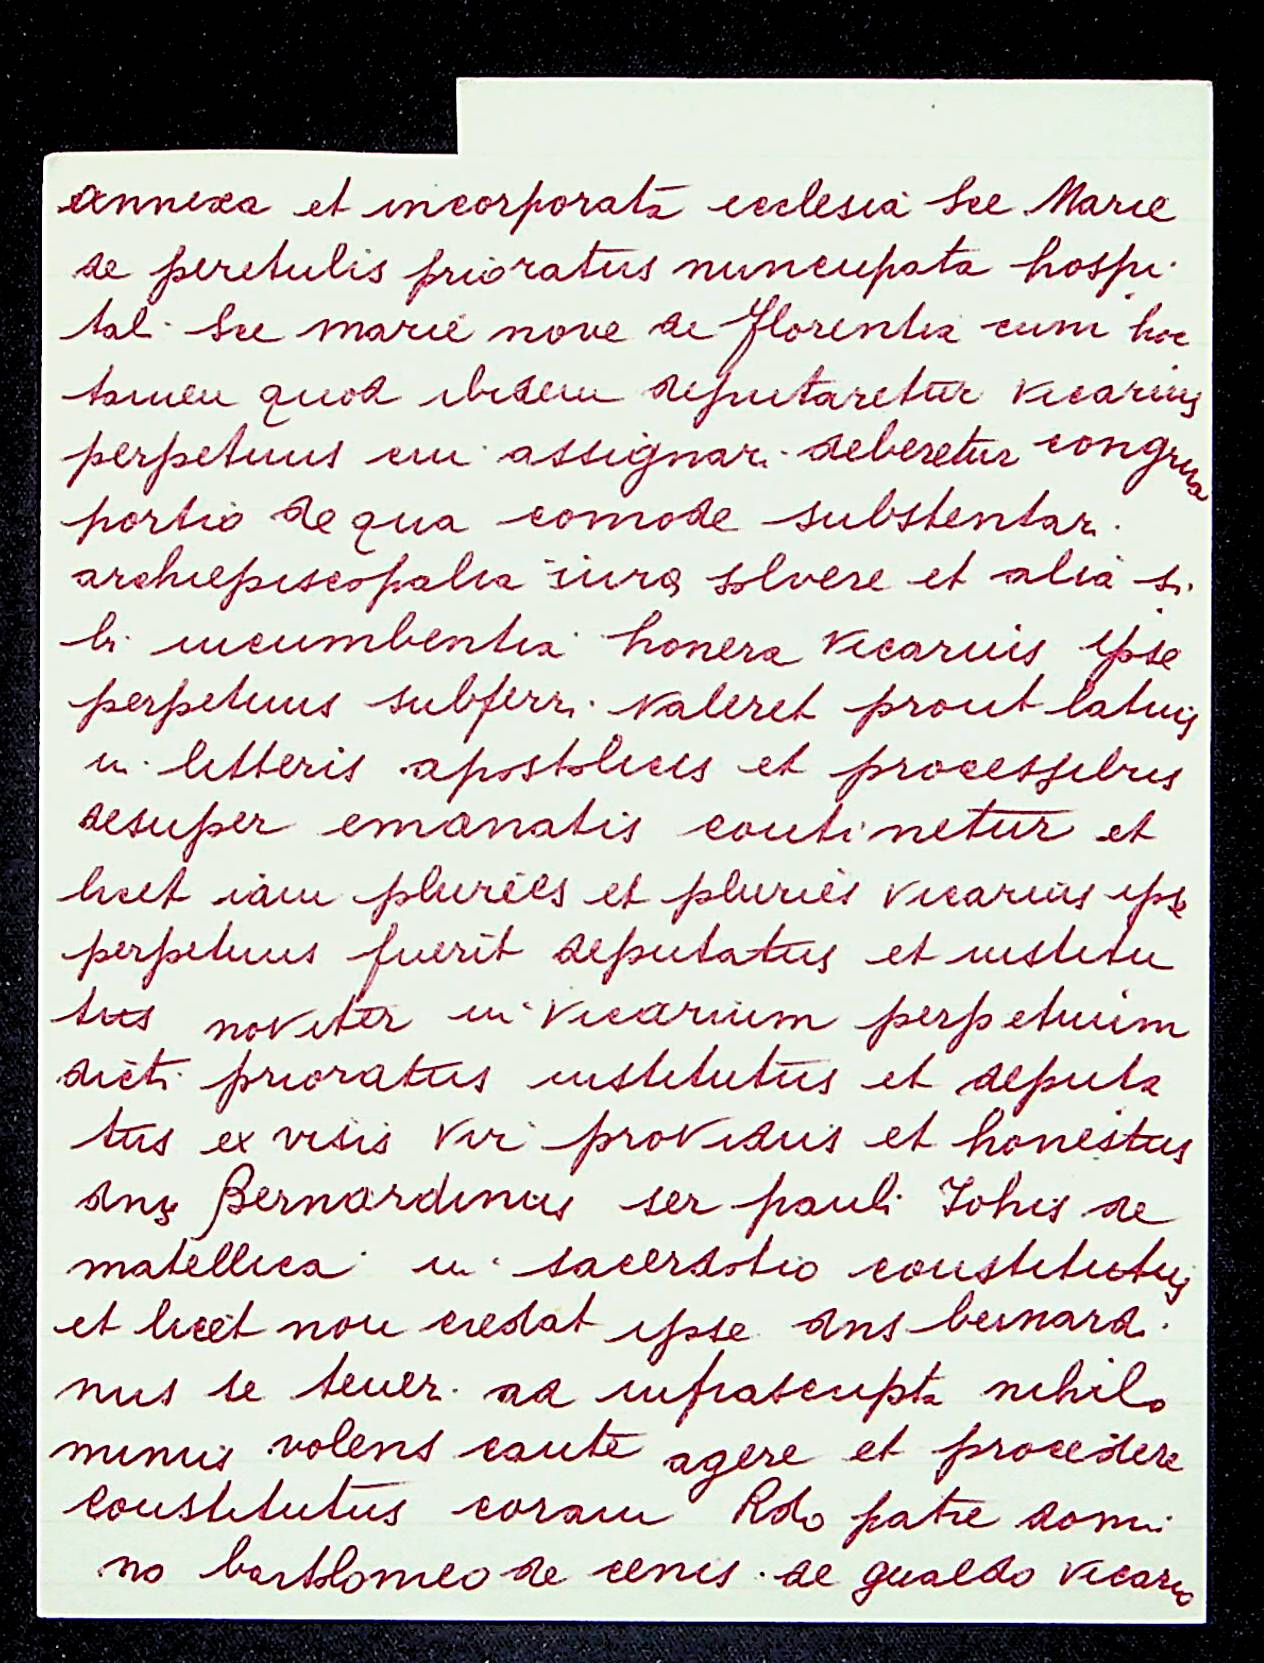 annexa et incorporata ecclesia Sce Marie
de peretulis prioratus nuncupata hospi
tal. Sce marie nove de Florentia cum hoc
tamen quod ibidem deputaretur vicarius
perpetuus cui assignari deberetur congrua
portio de qua comode substentari
archiepiscopalia iura solvere et alia si
bi incumbentia honera vicarius ipse
perpetuus subferri valeret prout latius
in litteris apostolicis et processibus
desuper emanatis continetur et
licet iam pluries et pluries vicarius ipse
perpetuus fuerit deputatus et institu
tus noviter in vicarium perpetuum
dicti prioratus institutus et deputa
tus ex visis vir providus et honestus
dns Bernardinus ser pauli Iohis de
matellica in sacerdotio constitutus
et licet non credat ipse dns bernardi
nus se teneri ad infrascripta nihilo
minus volens caute agere et procedere
constitutus coram Rdo patre domi
no bartolomeo de cenis de gualdo vicario